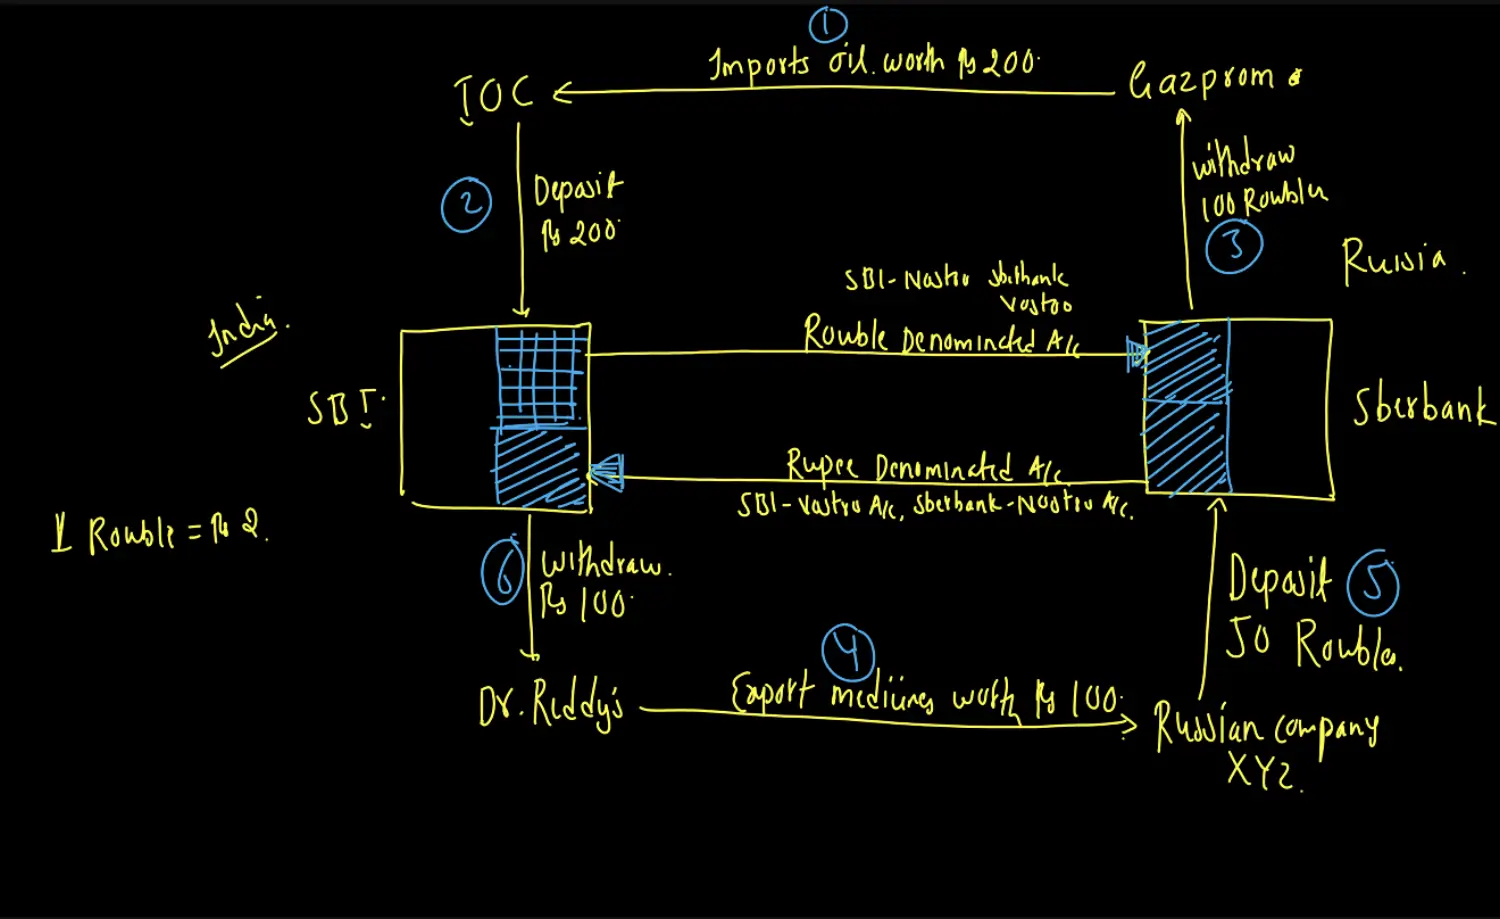 1
Imports oil. worth ₨ 200.
IOC
Gazprom
2
Deposit
₨ 200.
withdraw
100 Roubles
3
Russia.
India.
SBI-Nostro Sberbank
Vostro
Rouble Denominated A/c
SBI.
Sberbank
Rupee Denominated A/c.
SBI-Vostro A/c, Sberbank-Nostro A/c.
1 Rouble = ₨ 2.
6
withdraw.
₨ 100.
Deposit
5
50 Roubles.
4
Export medicines worth ₨ 100.
Dr. Reddy's
Russian company
XYZ.